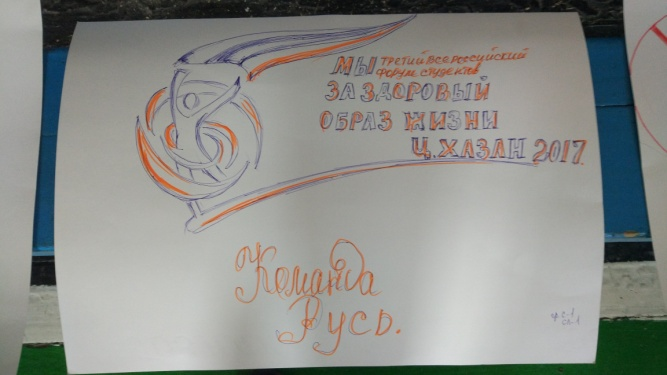 МЫ ТРЕТИЙ ВСЕРОССИЙСКИЙ
ФОРУМ СТУДЕНТОВ
ЗА ЗДОРОВЫЙ
ОБРАЗ ЖИЗНИ
Ц. ХАЗАН 2017
Команда
Русь.